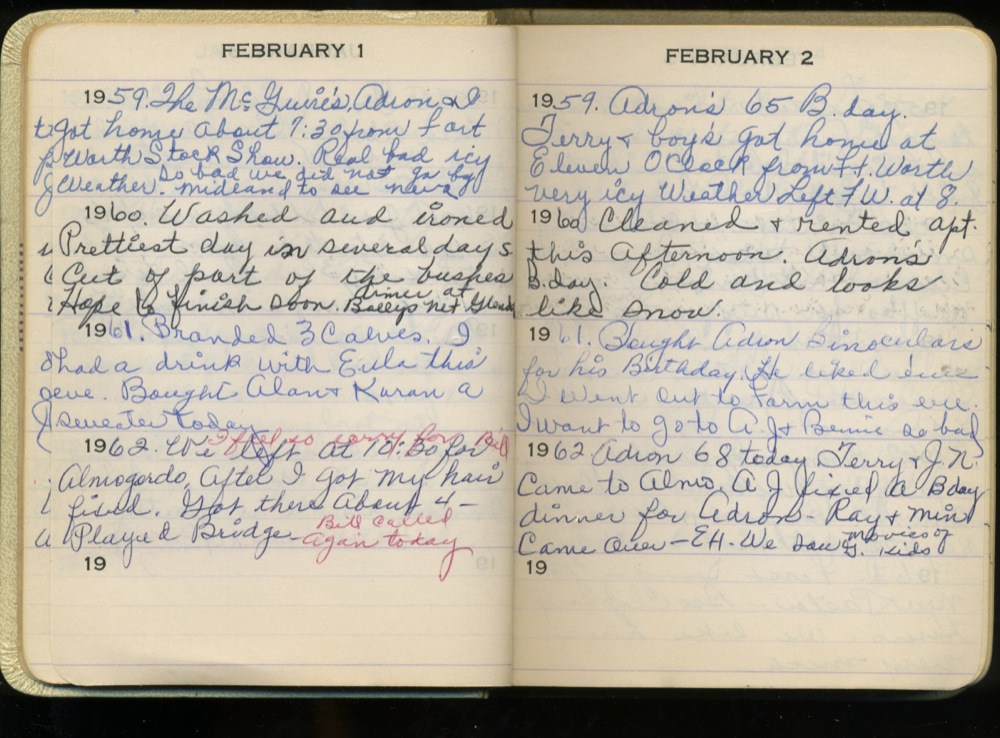 FEBRUARY 1
1959. The McGuire's, Adron, & I
got home about 7:30 from Fort
Worth Stock Show. Real bad icy
Weather. so bad we did not go by
mideand to see
1960. Washed and ironed
Prettiest day in several days
Cut of part of the bushes
Hope to finish soon. dinner at
Baileys net
1961. Branded 3 Calves. I
had a drink with Eula this
eve. Bought Alan & Karan a
sweater today
I feel so sorry for Bill
1962. We left at 10:30 for
Almogordo, After I got my hair
fixed. Got there about 4 –
Played Bridge – Bill called
again today
19
FEBRUARY 2
1959. Adron's 65 B.day.
Terry & boys got home at
Eleven O Clock from Ft. Worth
very icy Weather Left F W. at 8.
1960 Cleaned & rented apt.
this afternoon. Adron's
B.day. Cold and looks
like snow.
1961. Bought Adron Binoculars
for his Birthday. He liked
I went out to farm this eve.
I want to go to A.J & Bennie so bad
1962 Adron 68 today Terry & J.N.
Came to Almo. A J fixed a Bday
dinner for Adron – Ray & Min
Came Over – EH. We saw movies of
G. Kids
19